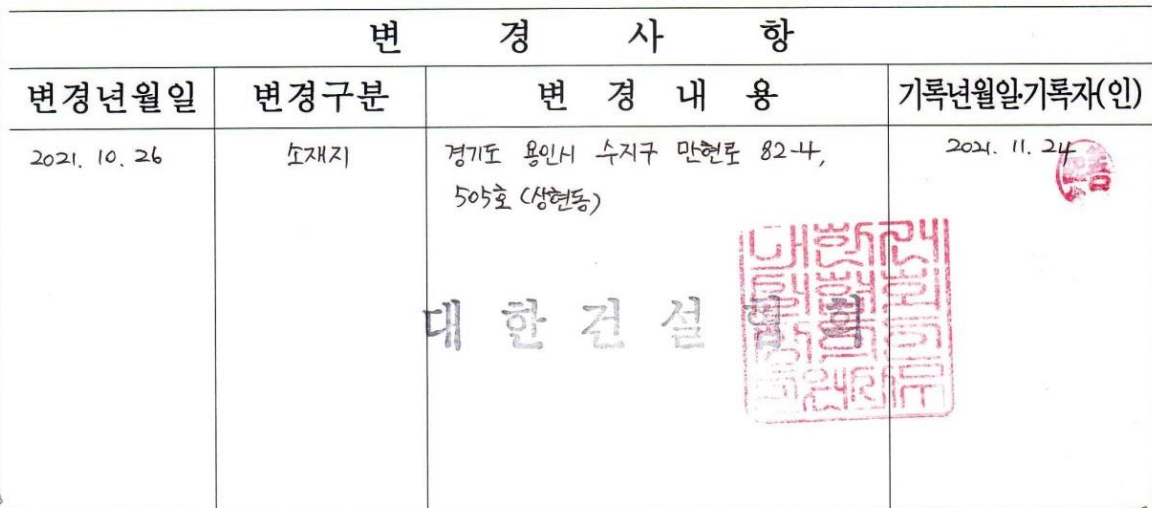 변 경 사 항
변경년월일 변경구분 변 경 내 용 기록년월일·기록자(인)
2021. 10. 26 소재지 경기도 용인시 수지구 만현로 82-4, 2021. 11. 24
505호 (상현동)
대 한 건 설 협 회